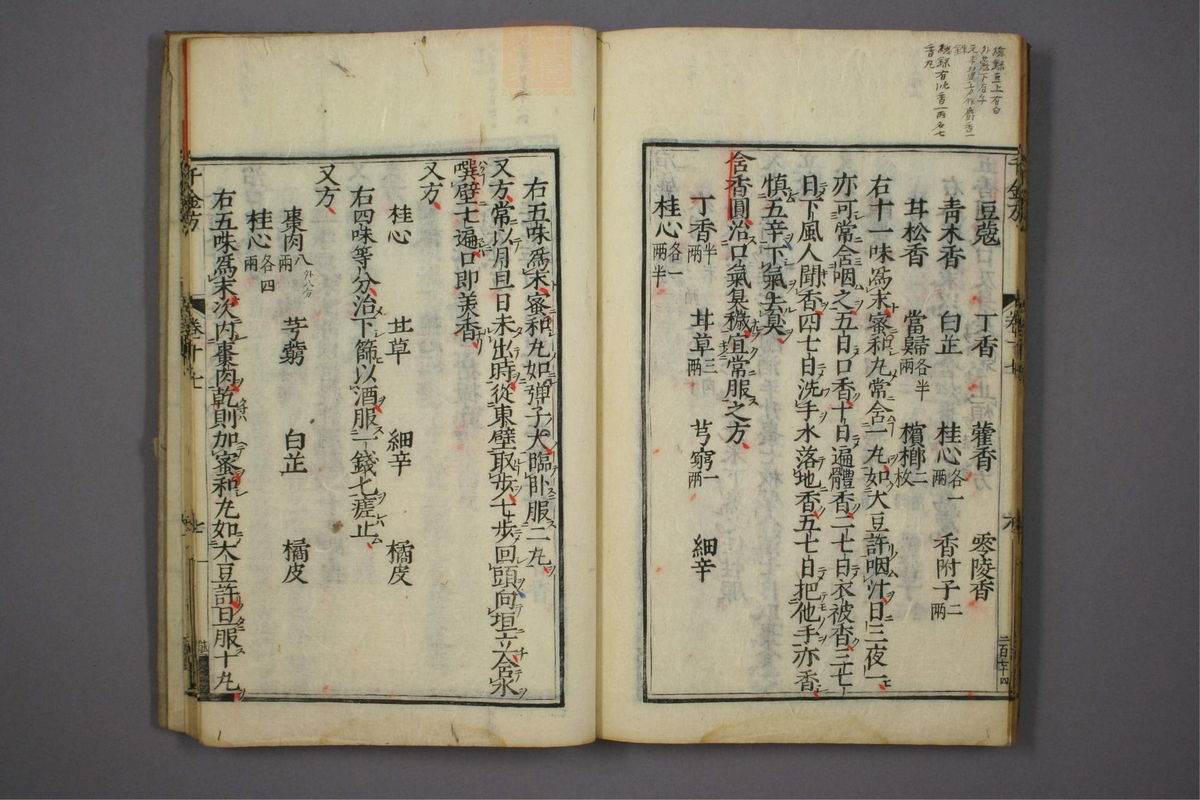 豆蔻 丁香 藿香 零陵香
青木香 白芷 桂心各一兩 香附子二兩
甘松香 當歸各半兩 檳榔二枚
右十一味爲末蜜和丸常含一丸如大豆許咽汁日三夜一
亦可常含咽之五日口香十日遍體香二七日衣被香三七
日下風人聞香四七日洗手水落地香五七日把他手亦香
慎五辛下氣去臭
含香圓治口氣臭穢宜常服之方
丁香半兩 甘草三兩 芎窮一兩 細辛
桂心各一兩半
右五味爲末蜜和丸如彈子大臨卧服二丸
又方常以月旦日未出時從東壁取步七步回頭向垣立含水
噀壁七遍口即美香
又方
桂心 甘草 細辛 橘皮
右四味等分治下篩以酒服一錢七瘥止
又方
棗肉八兩 芎藭 白芷 橘皮
桂心各四兩
右五味爲末次內棗肉乾則加蜜和丸如大豆許日服十丸
千金方 卷十七 七
千金方 卷十七